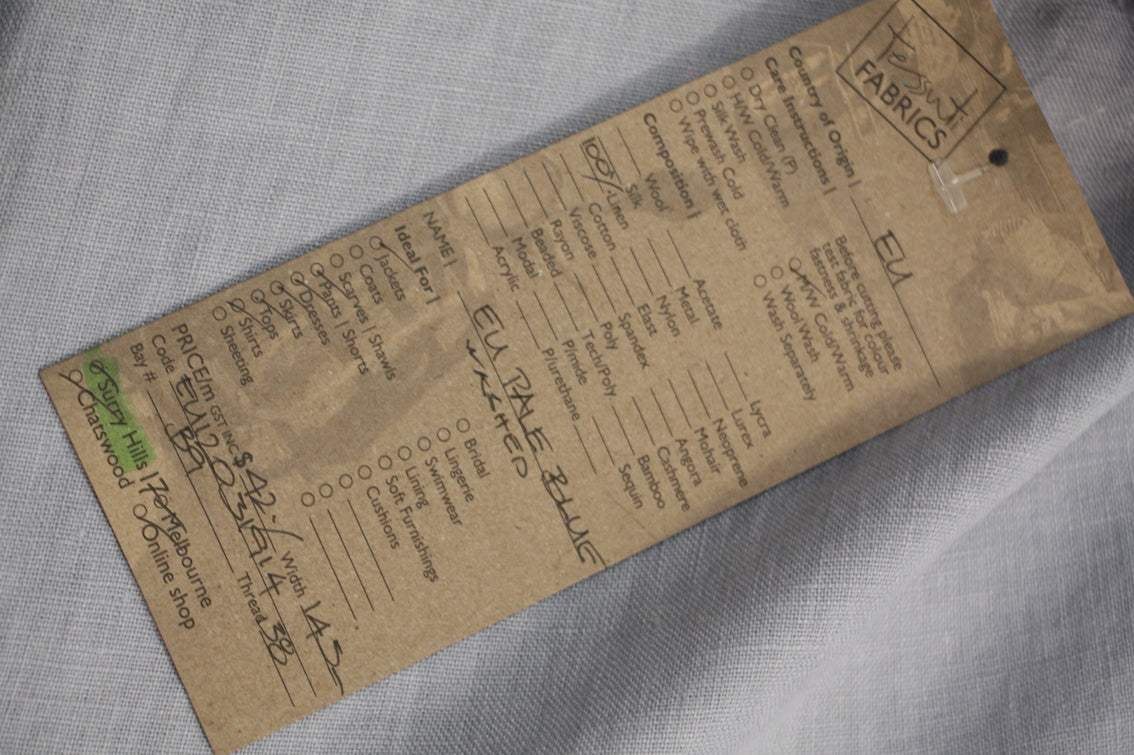 tessuti
FABRICS
Country of Origin | EU
Care Instructions | Before cutting, please
test fabric for colour
fastness & shrinkage
Dry Clean (P) H/W Cold/Warm
H/W Cold/Warm Wool Wash
Silk Wash Wash Separately
Prewash Cold
Wipe with wet cloth
Composition |
Wool Acetate Lycra
Silk Metal Lurex
100% Linen Nylon Neoprene
Cotton Elast Mohair
Viscose Spandex Angora
Rayon Poly Cashmere
Beaded Tech/Poly Bamboo
Modal P/mide Sequin
Acrylic P/urethane
NAME | EU PALE BLUE
WASHED
Ideal For |
Jackets Bridal
Coats Lingerie
Scarves | Shawls Swimwear
Pants | Shorts Lining
Dresses Soft Furnishings
Skirts Cushions
Tops
Shirts
Sheeting
PRICE/m GST INC $42.- Width 145
Code EU12031914 Thread 38
Bay # B9
Surry Hills | 70 Melbourne
Chatswood Online shop